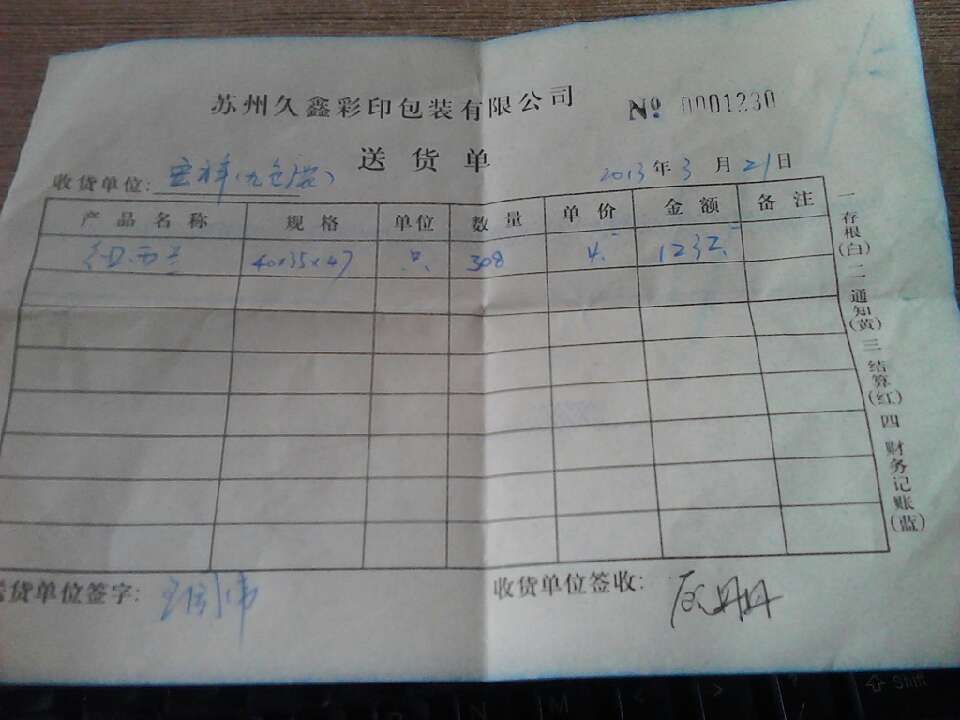 苏州久鑫彩印包装有限公司 № 0001230
送货单
收货单位: 2013年3月21日
产品名称 规格 单位 数量 单价 金额 备注
40×35×47 只 308 4.- 1232.-
一存根(白)二通知(黄)三结算(红)四财务记账(蓝)
货单位签字: 收货单位签收:
Shift